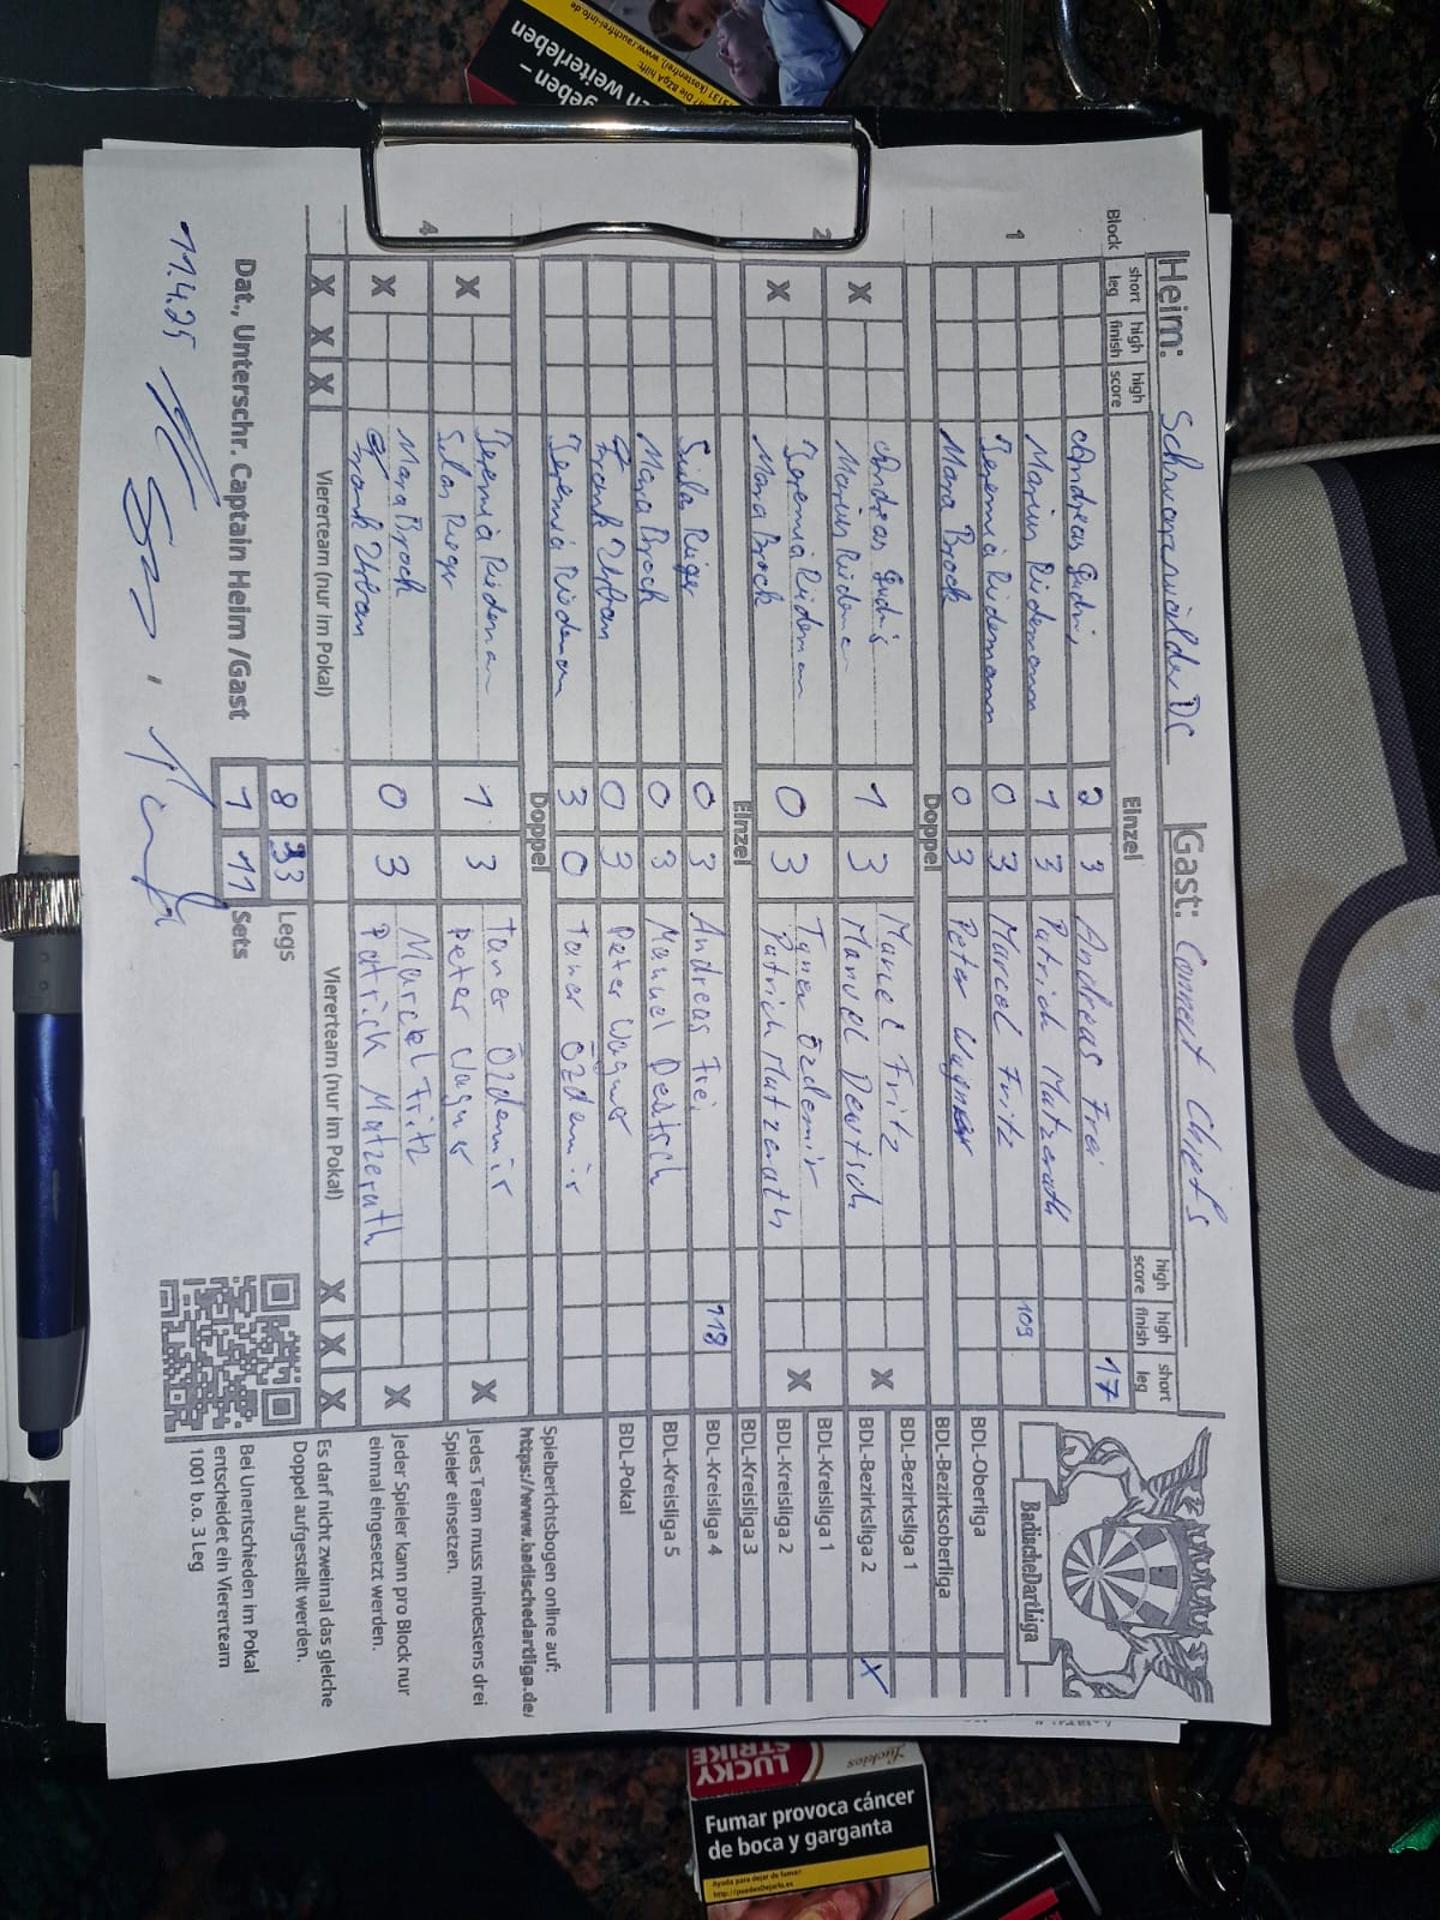 Heim: Schwarzwälder DC Gast: Connect Chiefs
Block short leg high finish high score Einzel high score high finish short leg
Andreas Gudri 2 3 Andreas Frei 17
1 Marius Riedemann 1 3 Patrick Matzerath
Jeremia Riedemann 0 3 Marcel Fritz 109
Mara Brock 0 3 Peter Wagner
Doppel
Andreas Gudri Marcel Fritz
X 1 3 X
Marius Riedeman Manuel Deutsch
2
Jeremia Riedeman Taner Özdemir
X 0 3 X
Mara Brock Patrick Matzerath
Einzel
Silas Rieger 0 3 Andreas Frei 118
Mara Brock 0 3 Manuel Deutsch
Frank Urban 0 3 Peter Wagner
Jeremia Riedeman 3 0 Taner Özdemir
Doppel
Jeremia Riedeman Taner Özdemir
X 1 3 X
Silas Rieger Peter Wagner
4
Mara Brock Marcel Fritz
X 0 3 X
Frank Urban Patrick Matzerath
X X X Viererteam (nur im Pokal) Viererteam (nur im Pokal) X X X
8 33 Legs
Dat., Unterschr. Captain Heim /Gast 1 11 Sets
11.4.25
BadischeDartLiga
BDL-Oberliga
BDL-Bezirksoberliga
BDL-Bezirksliga 1
BDL-Bezirksliga 2 X
BDL-Kreisliga 1
BDL-Kreisliga 2
BDL-Kreisliga 3
BDL-Kreisliga 4
BDL-Kreisliga 5
BDL-Pokal
Spielberichtsbogen online auf:
https://www.badischedartliga.de/
Jedes Team muss mindestens drei
Spieler einsetzen.
Jeder Spieler kann pro Block nur
einmal eingesetzt werden.
Es darf nicht zweimal das gleiche
Doppel aufgestellt werden.
Bei Unentschieden im Pokal
entscheidet ein Viererteam
1001 b.o. 3 Leg
geben –
en weiterleben
Die BZgA hilft:
(kostenfrei), www.rauchfrei-info.de
Luckies
LUCKY
STRIKE
Fumar provoca cáncer
de boca y garganta
Ayuda para dejar de fumar:
http://puedesDejarlo.es